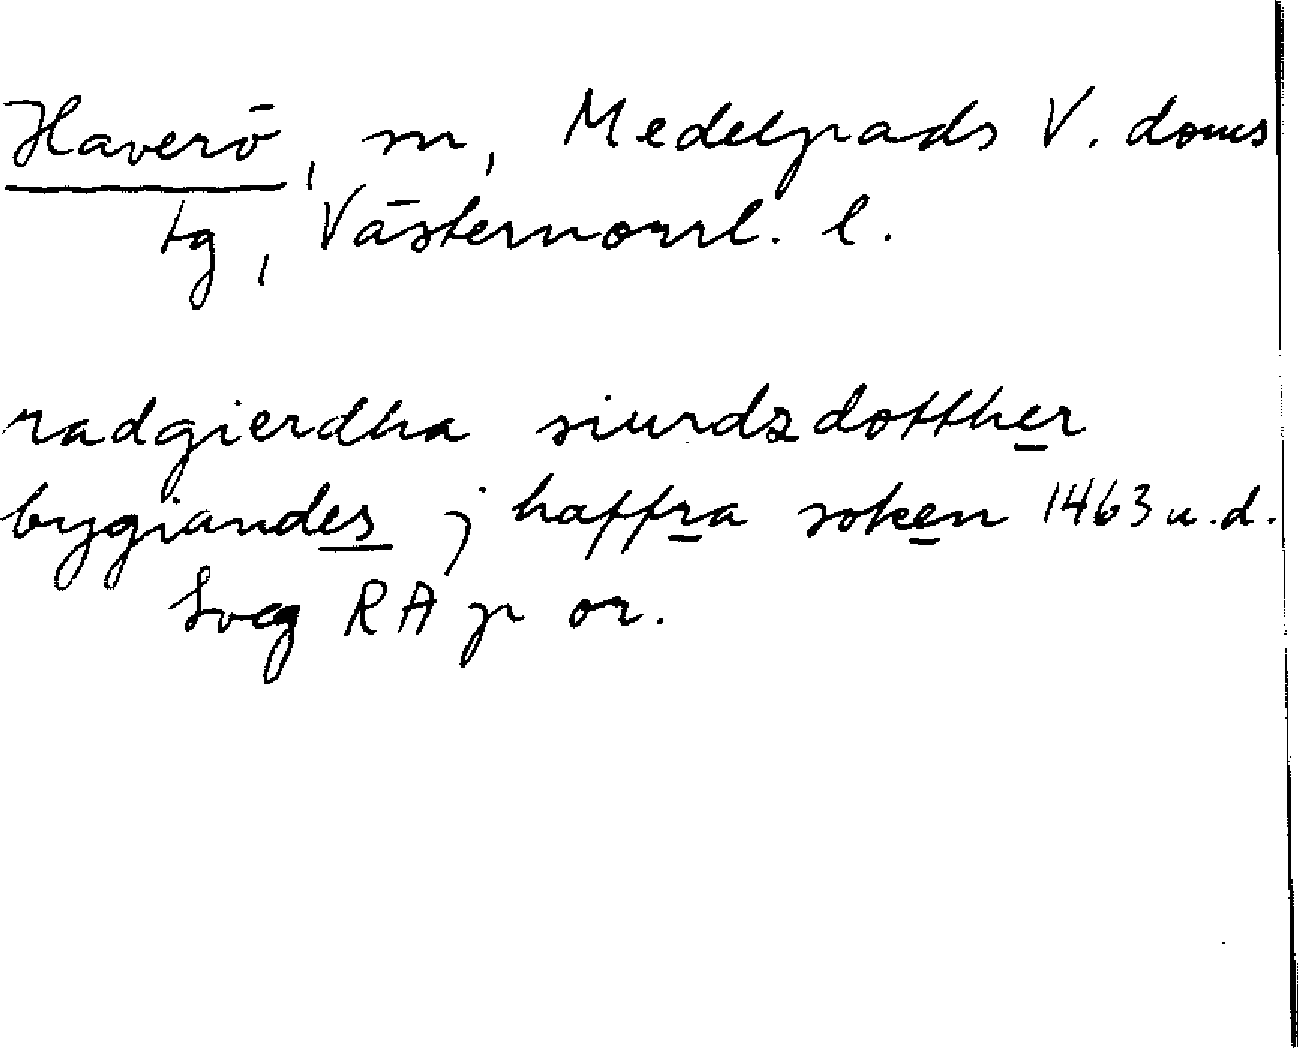 Haverö, sn, Medelpads V. doms
tg, Västernorrl. l.
radgierdha siurdzdotther
bygiandes j haffra soken 1463 u.d.
Sveg RA p or.